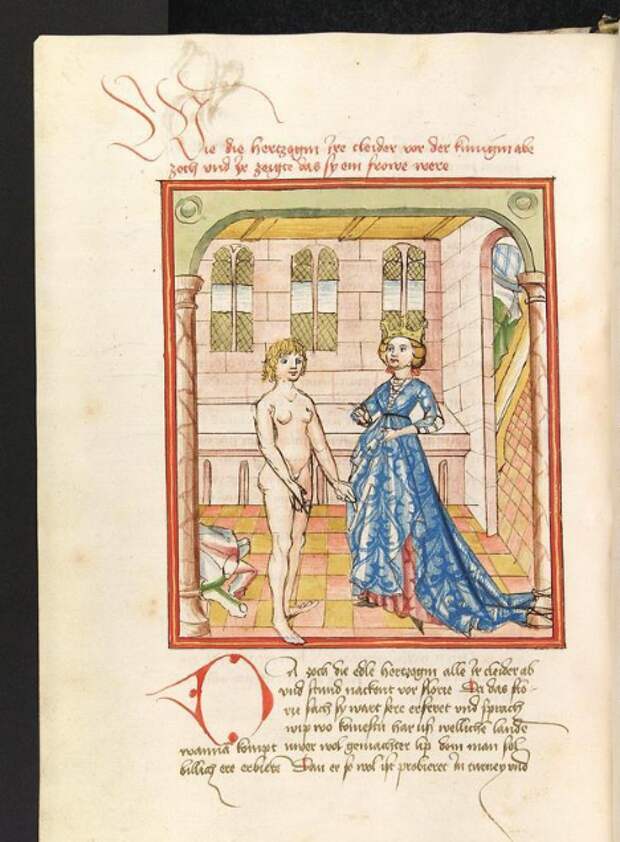 Wie die hertzogin ire cleider vor der kunigin abe
zoch vnd ir zeigte das sy ein frowe were
Da zoch die edle hertzogin alle ir cleider ab
vnd stund nackent vor florie Da das flo-
rij sach sy wart sere erferet vnd sprach
wip wo koment har vß welliche lande
wanna kompt uwer wol gemachter lip dem man sol
billich ere erbieten Dan er so wol ist probieret in turney vnd